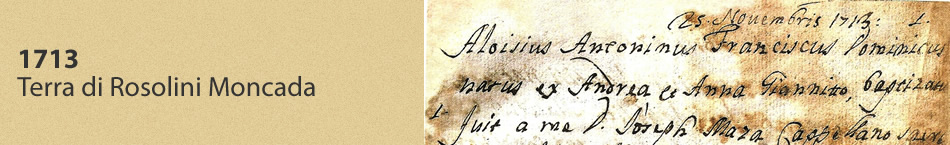 1713
Terra di Rosolini Moncada
25. Novembris 1713: 1.
Aloisius Antoninus Franciscus Dominicus
natus ex Andrea et Anna Giannitto, baptizatu
1. fuit a me D. Joseph Maza Cappellano sacr